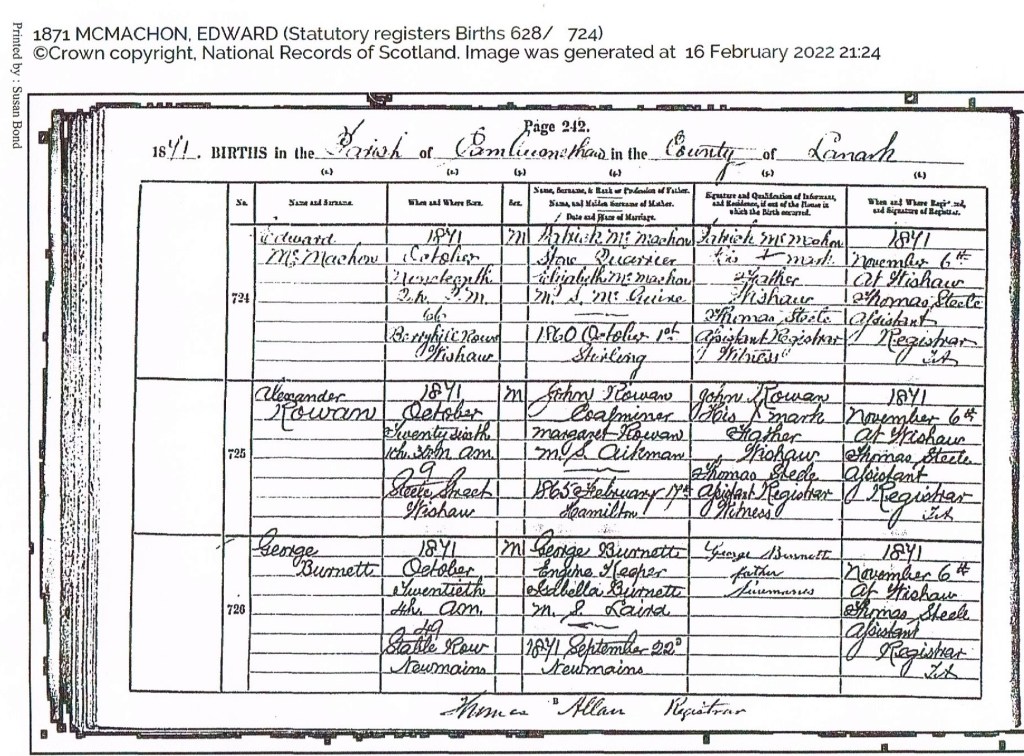 1871 MCMACHON, EDWARD (Statutory registers Births 628/ 724)
©Crown copyright, National Records of Scotland. Image was generated at 16 February 2022 21:24
Printed by : Susan Bond
Page 242.
1871. BIRTHS in the Parish of Cambusnethan in the County of Lanark
No.
Name and Surname.
When and Where Born.
Sex.
Name, Surname, & Rank or Profession of Father.
Name, and Maiden Surname of Mother.
Date and Place of Marriage.
Signature and Qualification of Informant,
and Residence, if out of the House in
which the Birth occurred.
When and Where Registered,
and Signature of Registrar.
724
Edward
McMachon
1871
October
Nineteenth
2h. P.M.
66
Berryhill Rows
Wishaw
M
Patrick McMachon
Stone Quarrier
Elizabeth McMachon
M. S. McGuire
1860 October 1st
Stirling
Patrick McMachon
His + mark
Father
Wishaw
Thomas Steele
Assistant Registrar
Witness
1871
November 6th
At Wishaw
Thomas Steele
Assistant
Registrar
725
Alexander
Rowan
1871
October
Twenty sixth
am.
9
Steele Street
Wishaw
M
John Rowan
Coalminer
Margaret Rowan
M. S. Aikman
1865 February 17th
Hamilton
John Rowan
His X mark
Father
Wishaw
Thomas Steele
Assistant Registrar
Witness
1871
November 6th
At Wishaw
Thomas Steele
Assistant
Registrar
726
George
Burnett
1871
October
Twentieth
4h. am.
49
Stable Row
Newmains
M
George Burnett
Engine Keeper
Isabella Burnett
M. S. Laird
1871 September 22d
Newmains
George Burnett
father
Newmains
1871
November 6th
At Wishaw
Thomas Steele
Assistant
Registrar
Thomas Allan Registrar